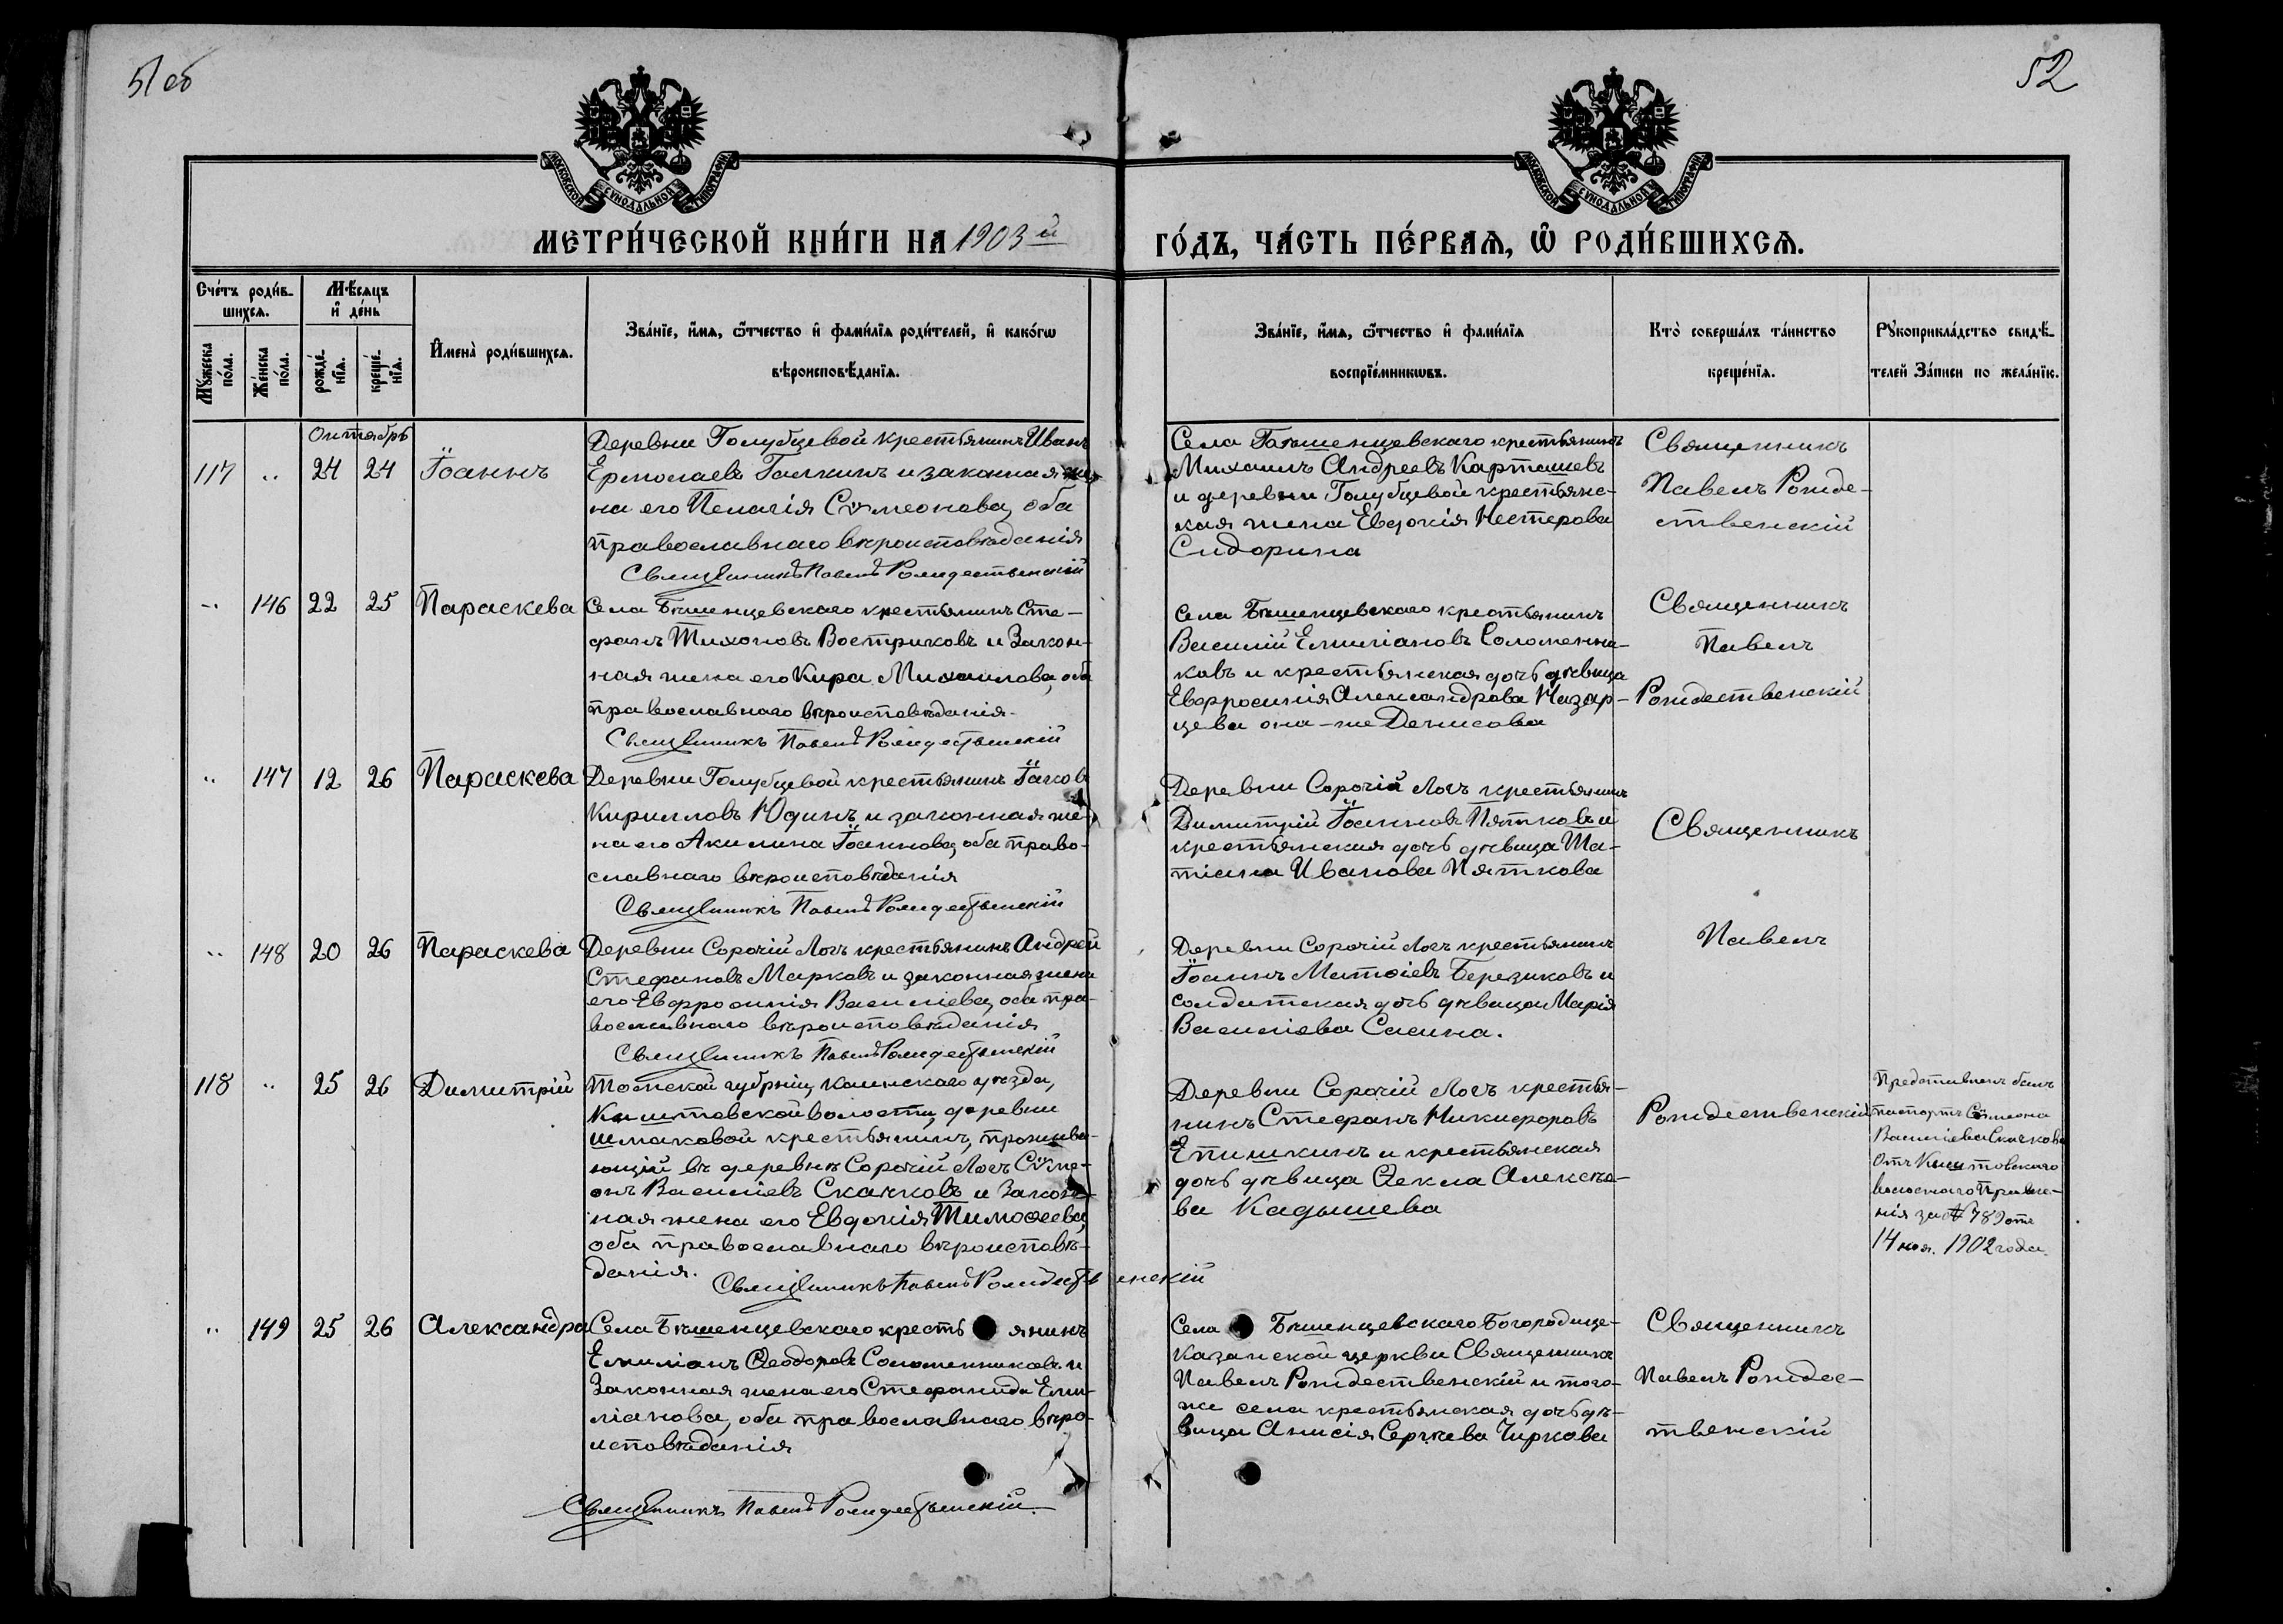 51 об
52
МОСКОВСКОЙ СѴНОДАЛЬНОЙ ТИПОГРАФІИ
МОСКОВСКОЙ СѴНОДАЛЬНОЙ ТИПОГРАФІИ
МЕТРИ́ЧЕСКОЙ КНИ́ГИ НА 1903й
ГО́ДЪ, ЧА́СТЬ ПЕ́РВАѦ, Ѡ҆ РОДИ́ВШИХСѦ.
Сче́тъ роди́в-
шихсѧ.
Мꙋ́жеска по́ла.
Же́нска по́ла.
Мѣ́сѧцъ
и҆ де́нь
рожде́нїѧ.
креще́нїѧ.
И҆мена̀ роди́вшихсѧ.
Зва́нїе, и҆́мѧ, ѻ҆́тчество и҆ фами́лїѧ роди́телей, и҆ како́гѡ
вѣроисповѣ́данїѧ.
Зва́нїе, и҆́мѧ, ѻ҆́тчество и҆ фами́лїѧ
воспрїе́мникѡвъ.
Кто̀ соверша́лъ та́инство
креще́нїѧ.
Рꙋкоприкла́дство свидѣ́-
телей За́писи по жела́нїю.
Октябрь
117 „ 24 24 Іоаннъ
Деревни Голубцевой крестьянинъ Иванъ
Ермолаевъ Галкинъ и законная же-
на его Пелагія Сѵмеонова, оба
православнаго вѣроисповѣданія
Священникъ Павелъ Рождественскій
Села крестьянинъ
Михаилъ Андреевъ Карташевъ
и деревни Голубцевой крестьянс-
кая жена Евдокія Нестерова
Сидорина
Священникъ
Павелъ Рожде-
ственскій
„ 146 22 25 Параскева
Села Бѣшенцевскаго крестьянинъ Сте-
фанъ Тихоновъ Востриковъ и Закон-
ная жена его Кира Михаилова, оба
православнаго вѣроисповѣданія.
Священникъ Павелъ Рождественскій
Села Бѣшенцевскаго крестьянинъ
Василій Емиліановъ Соломенни-
ковъ и крестьянская дочь дѣвица
Евфросинія Александрова Назар-
цева она-же Денисова
Священникъ
Павелъ
Рождественскій
„ 147 12 26 Параскева
Деревни Голубцевой крестьянинъ Іаковъ
Кирилловъ Юдинъ и законная же-
на его Акилина Іоаннова, оба право-
славнаго вѣроисповѣданія
Священникъ Павелъ Рождественскій
Деревни Сорочій Логъ крестьянинъ
Димитрій Іоанновъ Пятковъ и
крестьянская дочь дѣвица Та-
тіана Иванова Пяткова
Священникъ
„ 148 20 26 Параскева
Деревни Сорочій Логъ крестьянинъ Андрей
Стефановъ Марковъ и законная жена
его Евфросинія Василіева, оба пра-
вославнаго вѣроисповѣданія
Священникъ Павелъ Рождественскій
Деревни Сорочій Логъ крестьянинъ
Іоаннъ Матѳіевъ Березиковъ и
солдатская дочь дѣвица Марія
Василіева Сасина.
Павелъ
118 „ 25 26 Димитрій
Томской губрніи, Каинскаго уѣзда,
Кыштовской волости, деревни
Шмаковой крестьянинъ, прожива-
ющій въ деревнѣ Сорочій Логъ Сѵме-
онъ Василіевъ Скачковъ и Закон-
ная жена его Евдокія Тимоѳеева,
оба православнаго вѣроисповѣ-
данія.
Священникъ Павелъ Рождественскій
Деревни Сорочій Логъ крестья-
нинъ Стефанъ Никифоровъ
Епишкинъ и крестьянская
дочь дѣвица Ѳекла Алексѣе-
ва Кадышева
Рождественскій
Представленъ былъ
паспортъ Сѵмеона
Василіева Скачкова
Отъ Кыштовскаго
волоснаго Правле-
нія за № 789 отъ
14 ноя. 1902 года.
„ 149 25 26 Александра
Села Бѣшенцевскаго крестьянинъ
Емиліанъ Ѳеодоровъ Соломенниковъ и
Законная жена его Стефанида Еми-
ліанова, оба православнаго вѣро-
исповѣданія
Священникъ Павелъ Рождественскій
Села Бѣшенцевскаго Богородице-
Казанской церкви Священникъ
Павелъ Рождественскій и того-
же села крестьянская дочь дѣ-
вица Анисія Сергѣева Чиркова
Священникъ
Павелъ Рождес-
твенскій